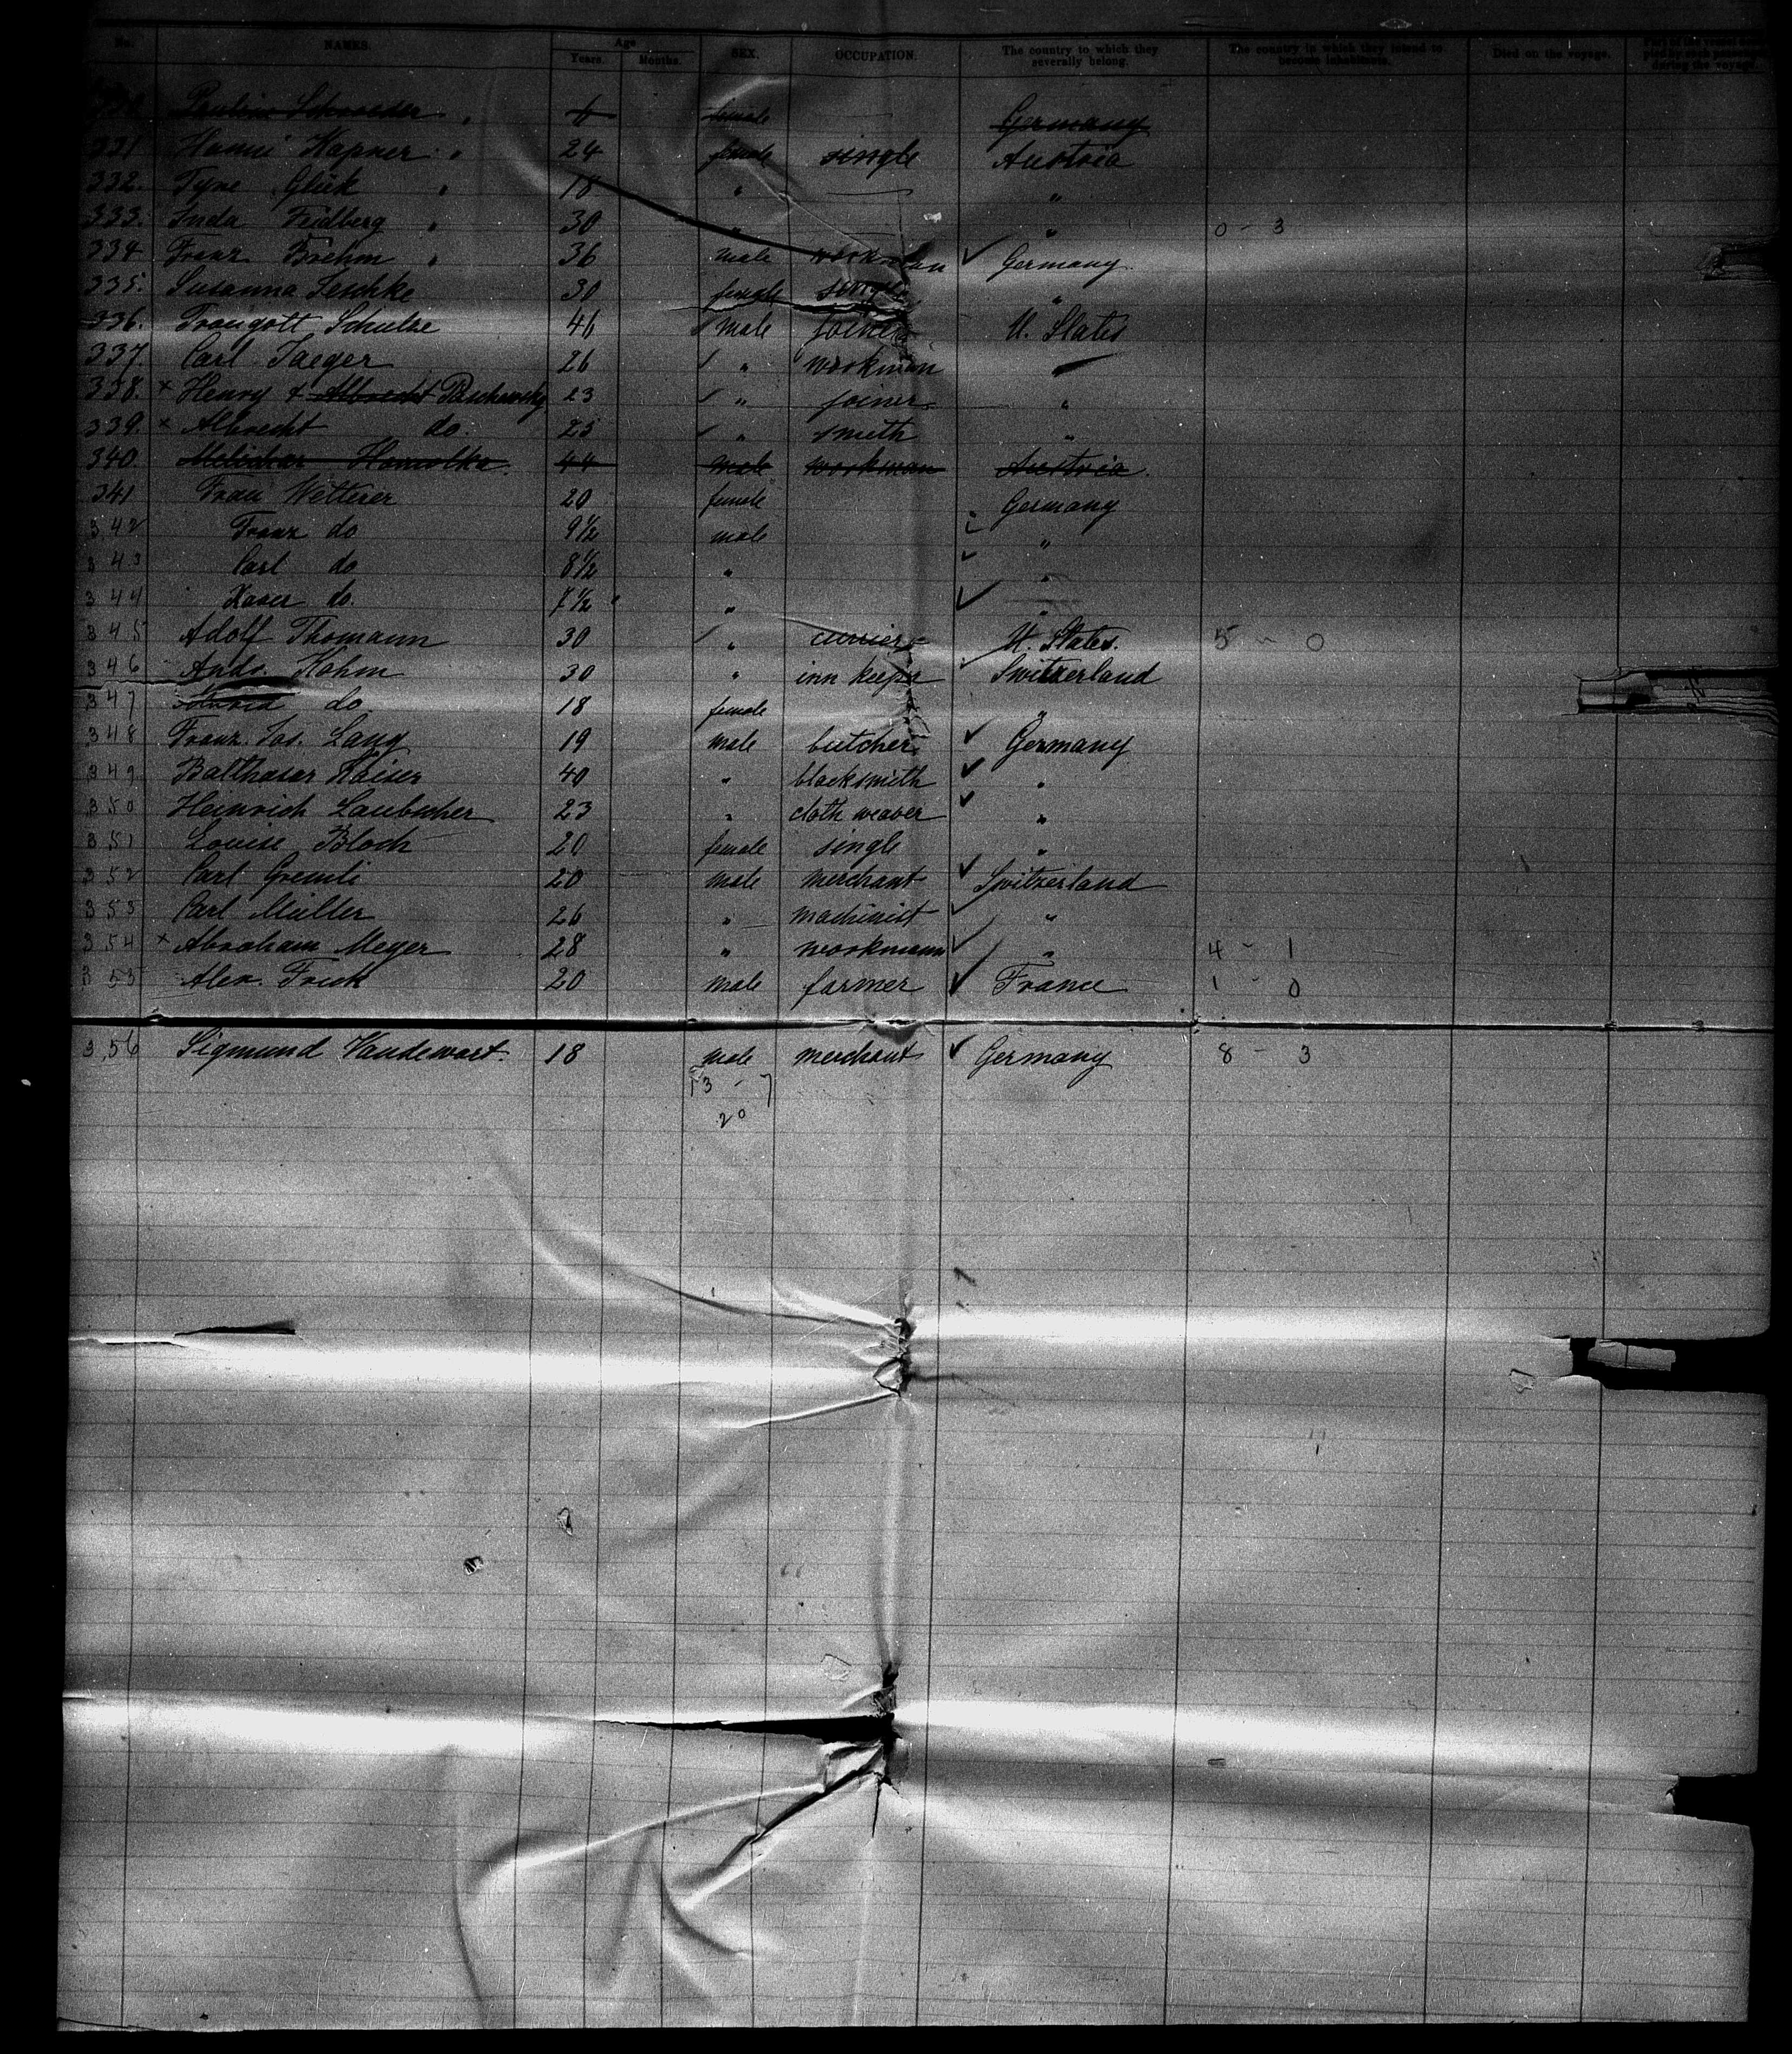 No. NAMES. Age Years. Months. SEX. OCCUPATION. The country to which they severally belong. The country in which they intend to become inhabitants. Died on the voyage. Part of the vessel occupied by each passenger during the voyage.
Pauline Schroeder " female Germany
331 Hanni Kapner " 24 female single Austria
332. Tyne Glük " 18 " "
333. Inda Feidberg " 30 " " 0 - 3
334 Franz Boehm " 36 male workman ✓ Germany
335. Susanna Teschke 30 female single "
336. Traugott Schulze 46 ✓ male joiner U. States
337. Carl Jaeger 26 ✓ " workman "
338. × Henry & Albrecht 23 ✓ " joiner "
339. × Albrecht do. 25 ✓ " smith "
340 Melichar Homolka 44 male workman Austria.
341 Frau Wetterer 20 female Germany
342 Franz do 9½ male "
343 Carl do 8½ " ✓ "
344 Xaver do. 7½ " ✓ "
345 Adolf Thomann 30 ✓ " currier U. States. 5 - 0
346 Andr. Hohm 30 " inn keeper Switzerland
347 do. 18 female "
348 Franz. Jos. Lang 19 male butcher ✓ Germany
349 Balthasar Kaiser 40 " blacksmith ✓ "
350 Heinrich Laubscher 23 " cloth weaver ✓ "
351 Louise Bloch 20 female single "
352 Carl Gremli 20 male merchant ✓ Switzerland
353 Carl Müller 26 " machinist ✓ "
354 × Abraham Meyer 28 " workmann ✓ " 4 - 1
355 Alex. Frick 20 male farmer ✓ France 1 - 0
356 Sigmund Vandewart. 18 male merchant ✓ Germany 8 - 3
13 - 7
20